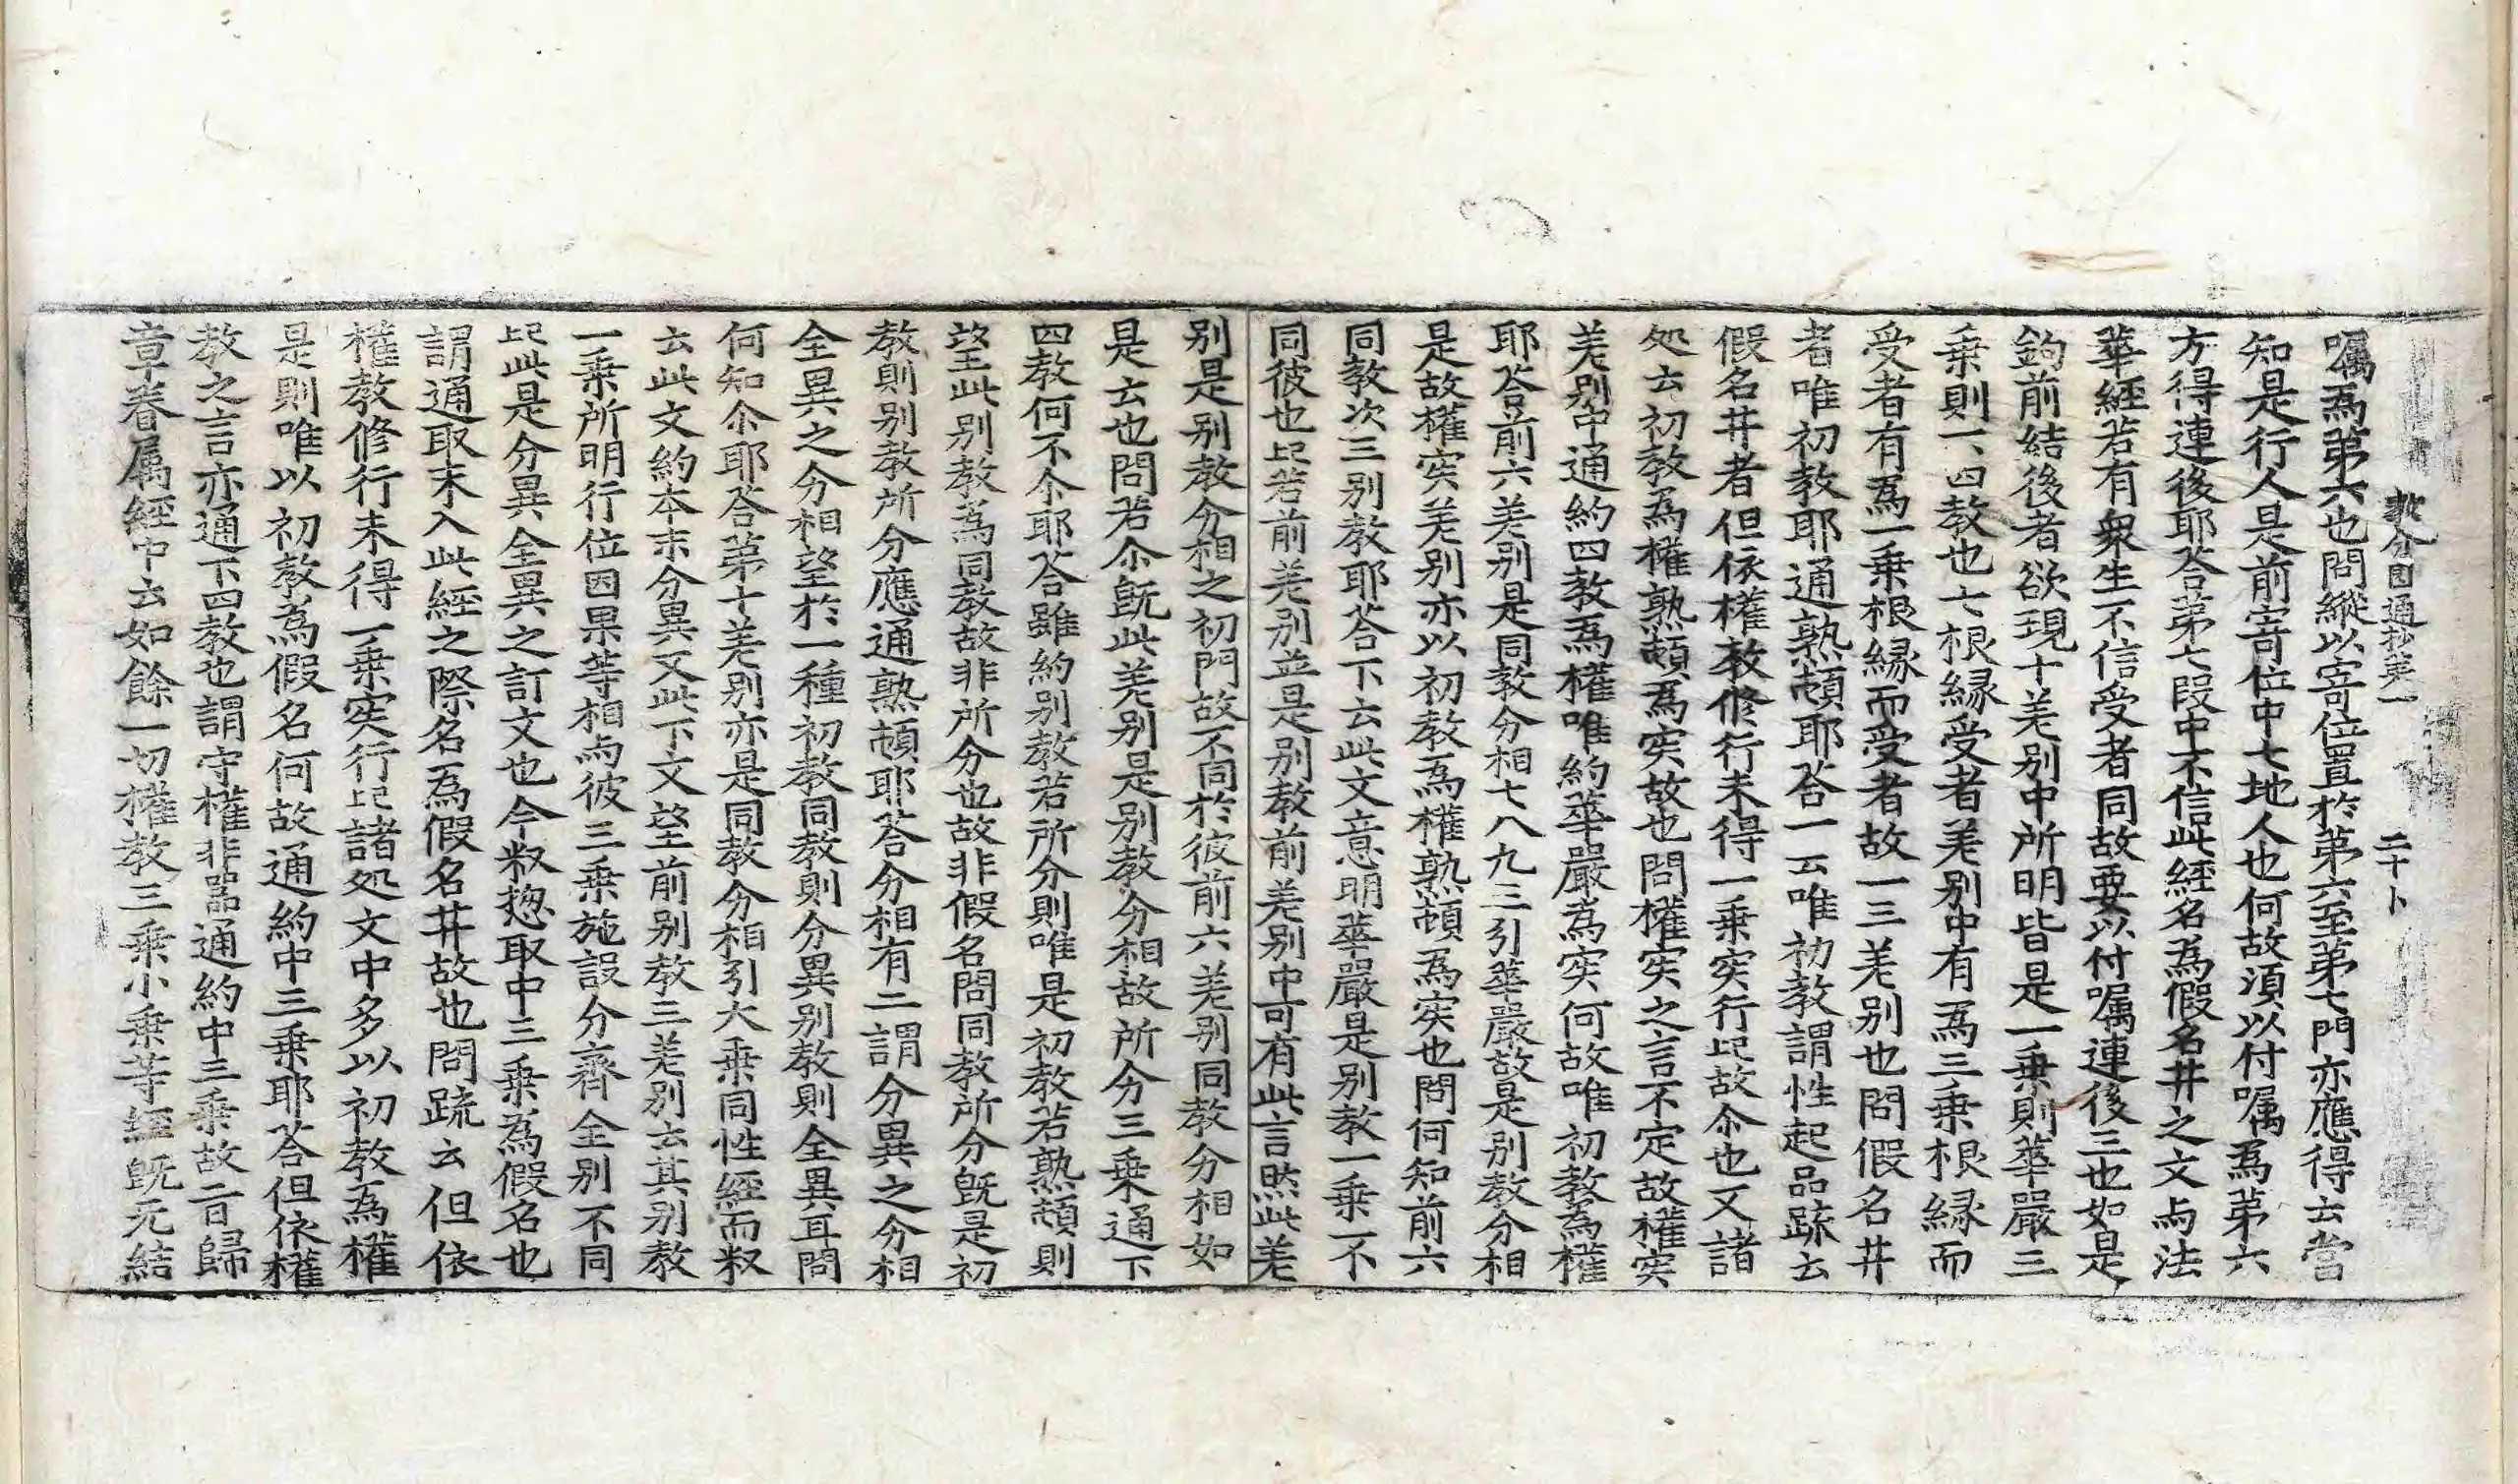 教分圓通抄第一　二十卜
嘱為第六也問縱以寄位置於第六至第七門亦應得去當
知是行人是前寄位中七地人也何故須以付嘱為第六
方得連後耶荅第七段中不信此經名為假名井之文与法
華經若有衆生不信受者同故要以付嘱連後三也如是
鉤前結後者欲現十差別中所明皆是一乗則華嚴三
乗則一、四教也七根縁受者差別中有為三乗根縁而
受者有為一乗根縁而受者故一三差别也問假名井
者唯初教耶通熟頓耶荅一云唯初教謂性起品䟽云
假名井者但依權教修行未得一乗宲行記故尒也又諸
処云初教為權熟頓為宲故也問權宲之言不定故權宲
差別中通約四教為權唯約華嚴為宲何故唯初教為權
耶荅前六差别是同教分相七八九三引華嚴故是别教分相
是故權宲差别亦以初教為權熟頓為宲也問何知前六
同教次三别教耶荅下云此文意明華嚴是别教一乗不
同彼也記若前差別並是别教前差别中可有此言㷊此差
别是别教分相之初門故不同於彼前六差别同教分相如
是云也問若尒旣此差别是别教分相故所分三乗通下
四教何不尒耶荅雖約别教若所分則唯是初教若熟頓則
望此别教為同教故非所分也故非假名問同教所分旣是初
教則别教所分應通熟頓耶荅分相有二謂分異之分相
全異之分相望於一種初教同教則分異别教則全異耳問
何知尒耶荅第十差别亦是同教分相引大乗同性經而叙
云此文約本末分異又此下文望前别教三差别云其别教
一乗所明行位因果等相与彼三乗施設分齊全别不同
記此是分異全異之訂文也今叙揔取中三乗為假名也
謂通取末入此經之際名為假名井故也問䟽云但依
權教修行未得一乗宲行記諸処文中多以初教為權
是則唯以初教為假名何故通約中三乗耶荅但依權
教之言亦通下四教也謂守權非器通約中三乗故二百歸
章春属經中云如餘一切權教三乗小乗等經旣无結